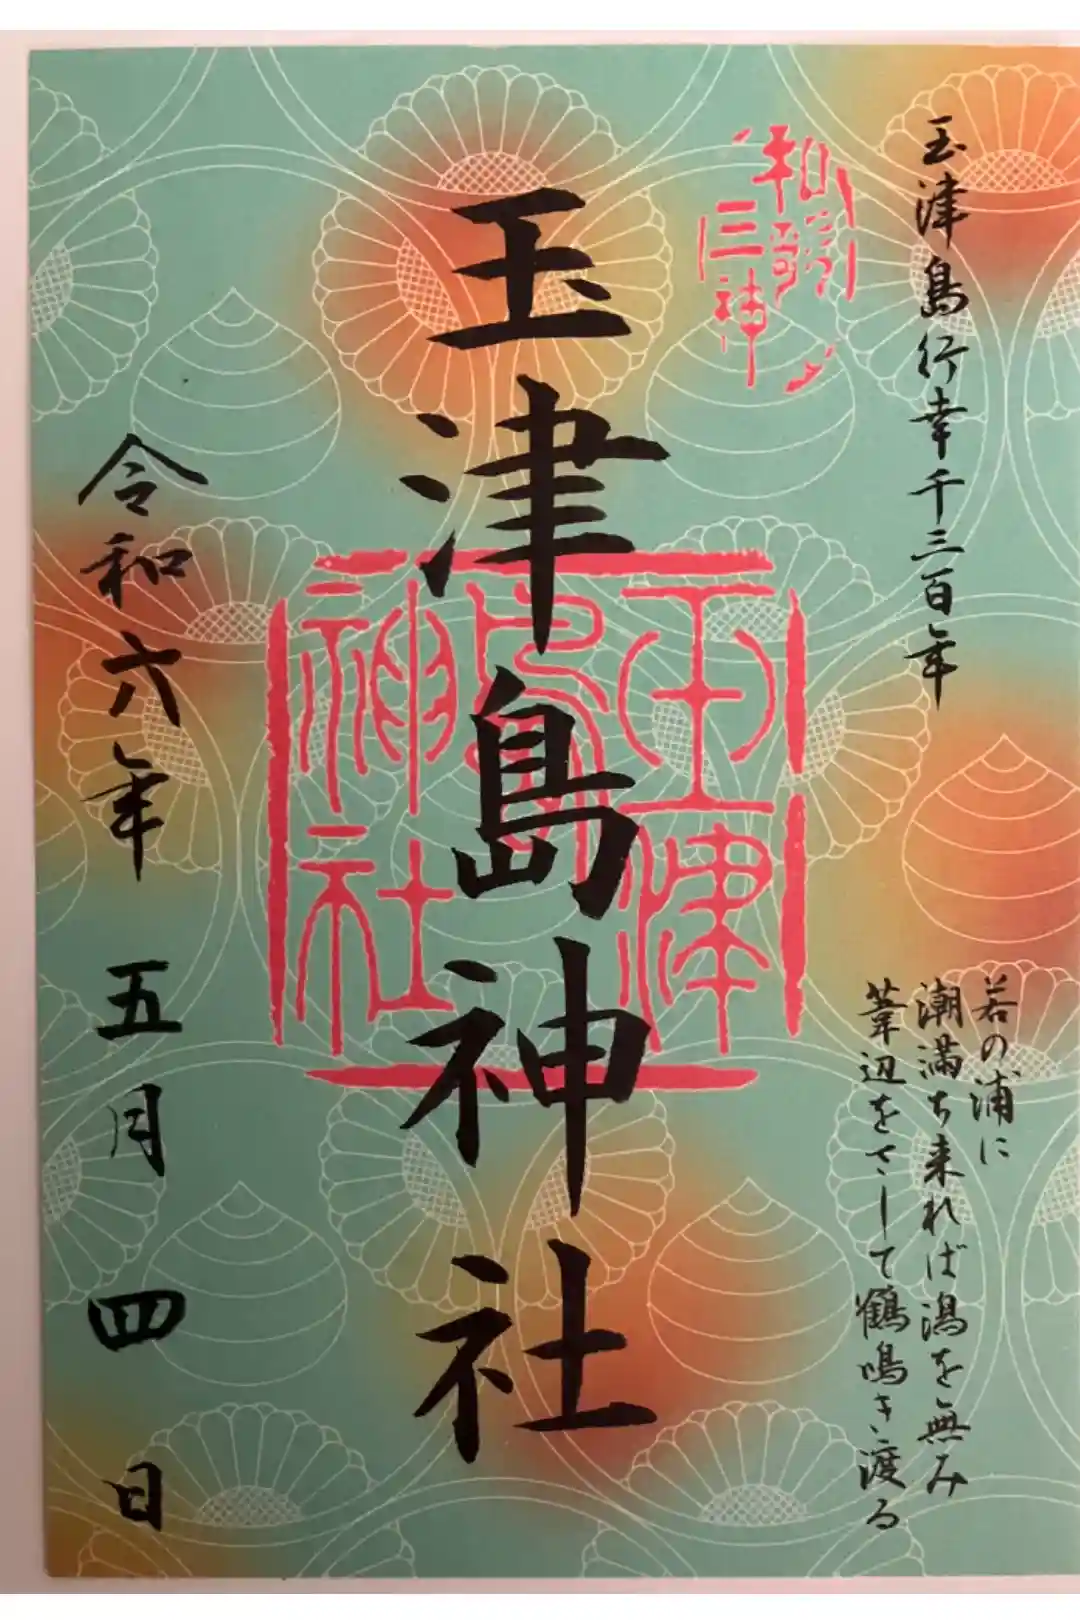 玉津島行幸千三百年
若の浦に
潮満ち来れば潟を無み
葦辺をさして鶴鳴き渡る
和歌
三神
玉津島神社
玉津
島
神社
令和六年五月四日